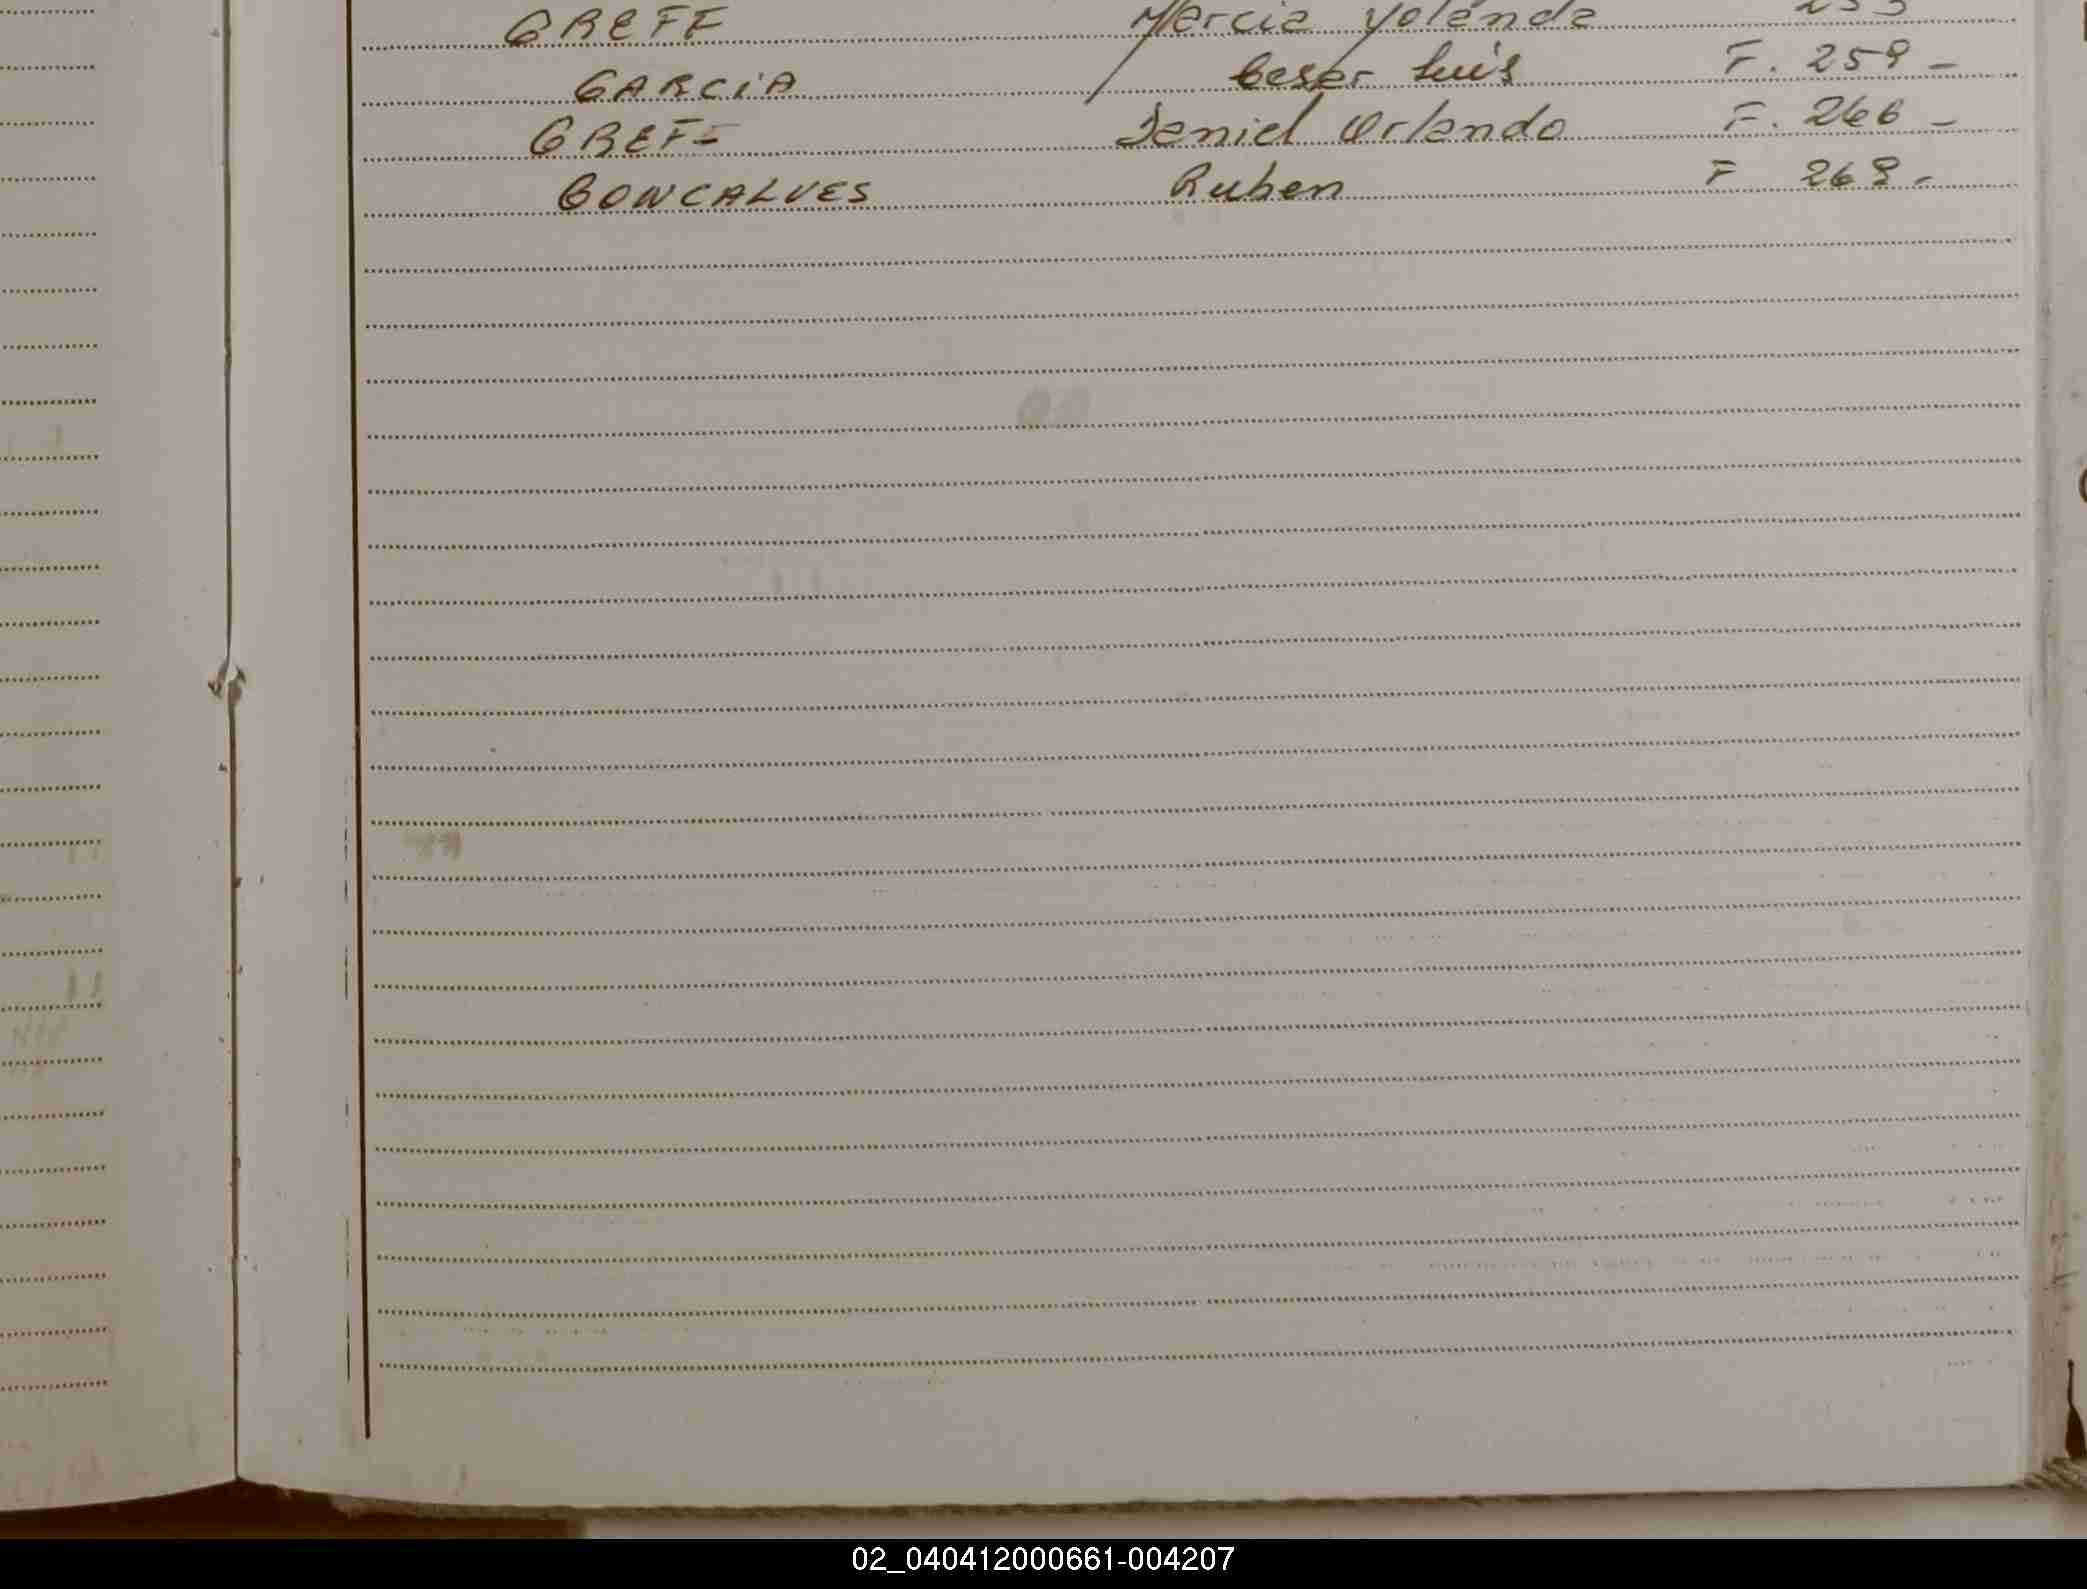 GREFF Marcia Yolanda
GARCIA Cesar Luis F. 259 -
GREFF Daniel Orlando F. 266 -
GONCALVES Ruben F 268 -
02_040412000661-004207